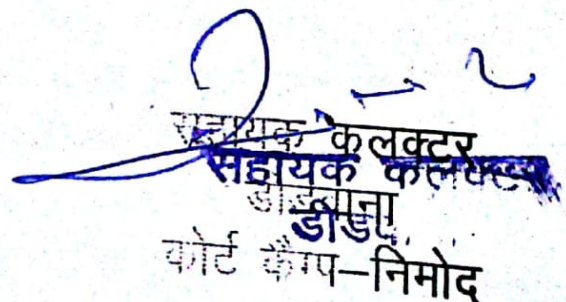 सहायक कलक्टर
सहायक कलक्टर
डीडवाना
डीडवाना
कोर्ट कैम्प–निमोद